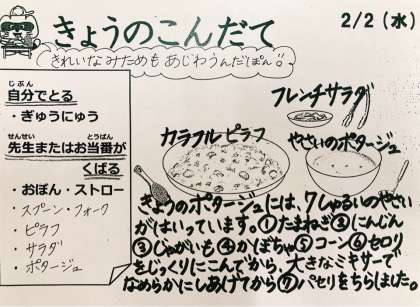 きょうのこんだて
2/2（水）
きれいなみためもあじわうんだぽん!!
じぶん
自分でとる
・ぎゅうにゅう
せんせい とうばん
先生またはお当番が
くばる
・おぼん・ストロー
・スプーン・フォーク
・ピラフ
・サラダ
・ポタージュ
フレンチサラダ
カラフルピラフ
やさいのポタージュ
きょうのポタージュには、7しゅるいのやさい
がはいっています。①たまねぎ②にんじん
③じゃがいも④かぼちゃ⑤コーン⑥セロリ
をじっくりにこんでから、大きなミキサーで
なめらかにしあげてから⑦パセリをちらしました。